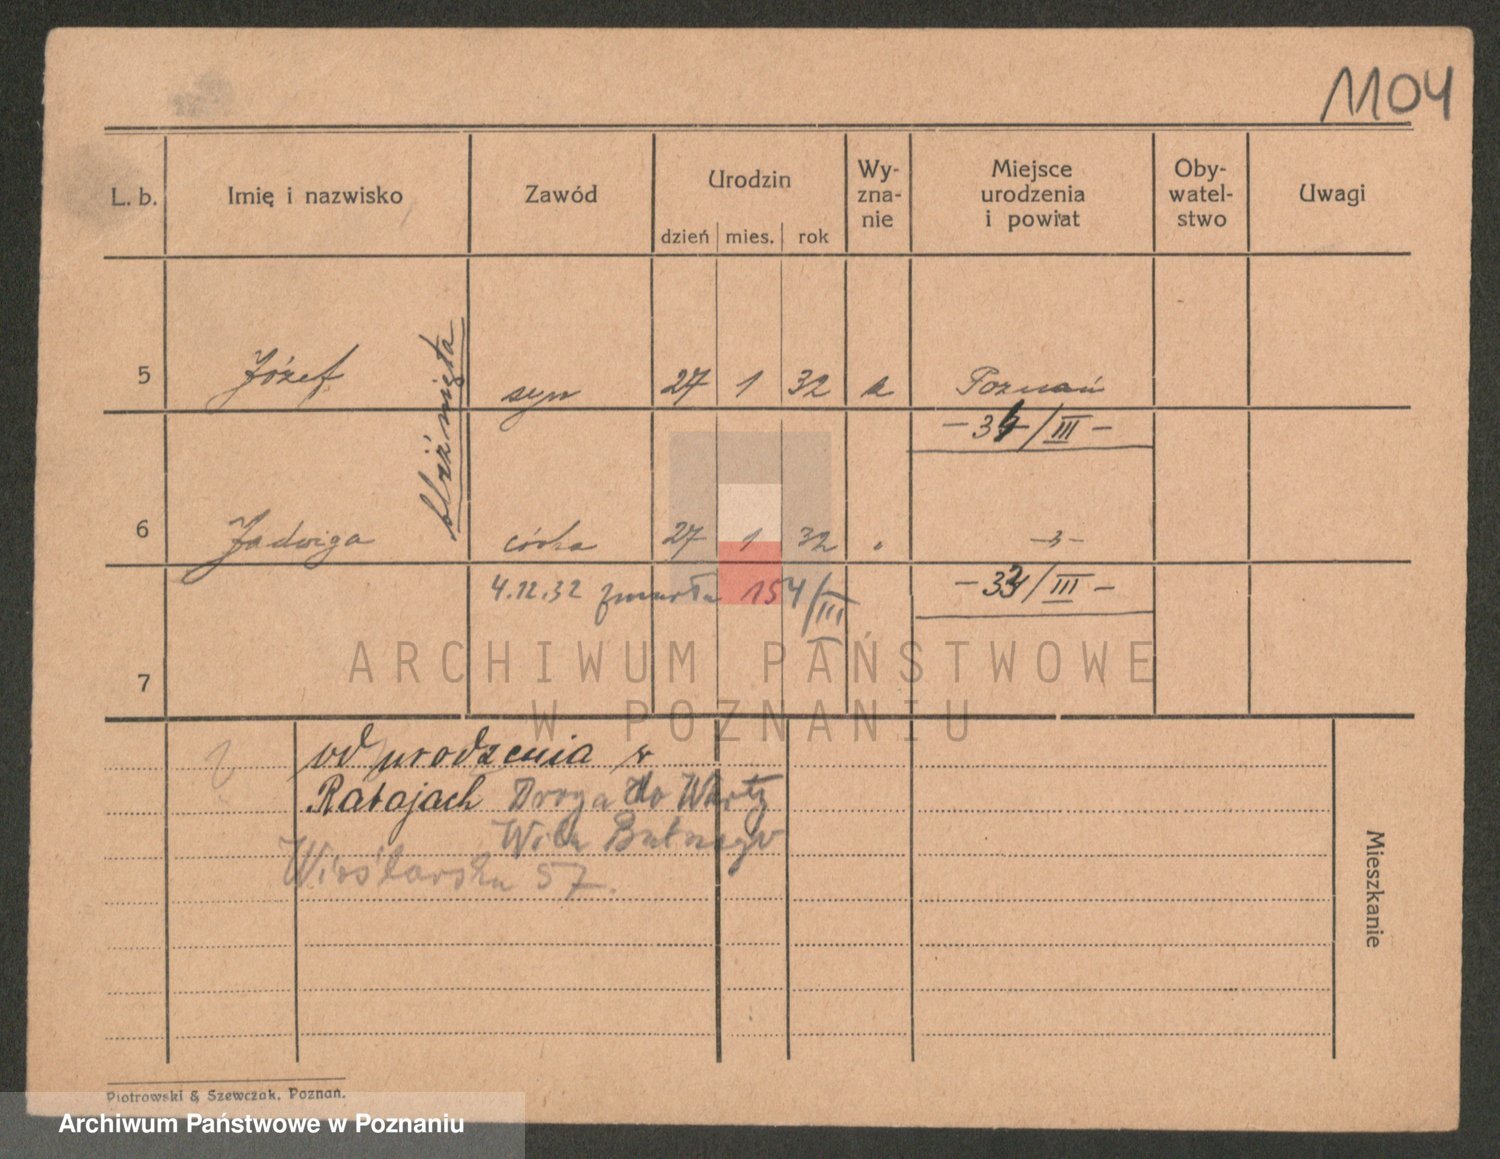 1104
L. b. Imię i nazwisko Zawód Urodzin Wy-zna-nie Miejsce urodzenia i powiat Oby-watel-stwo Uwagi
dzień mies. rok
5 Józef syn 27 1 32 k Poznań
bliźnięta
/III -
6 Jadwiga córka 27 1 32 "
4.12.32 zmarła 154/III
/III -
7
ARCHIWUM PAŃSTWOWE
W POZNANIU
od urodzenia w
Ratajach Droga do Warty
Wila
57.
Mieszkanie
Piotrowski & Szewczak, Poznań.
Archiwum Państwowe w Poznaniu